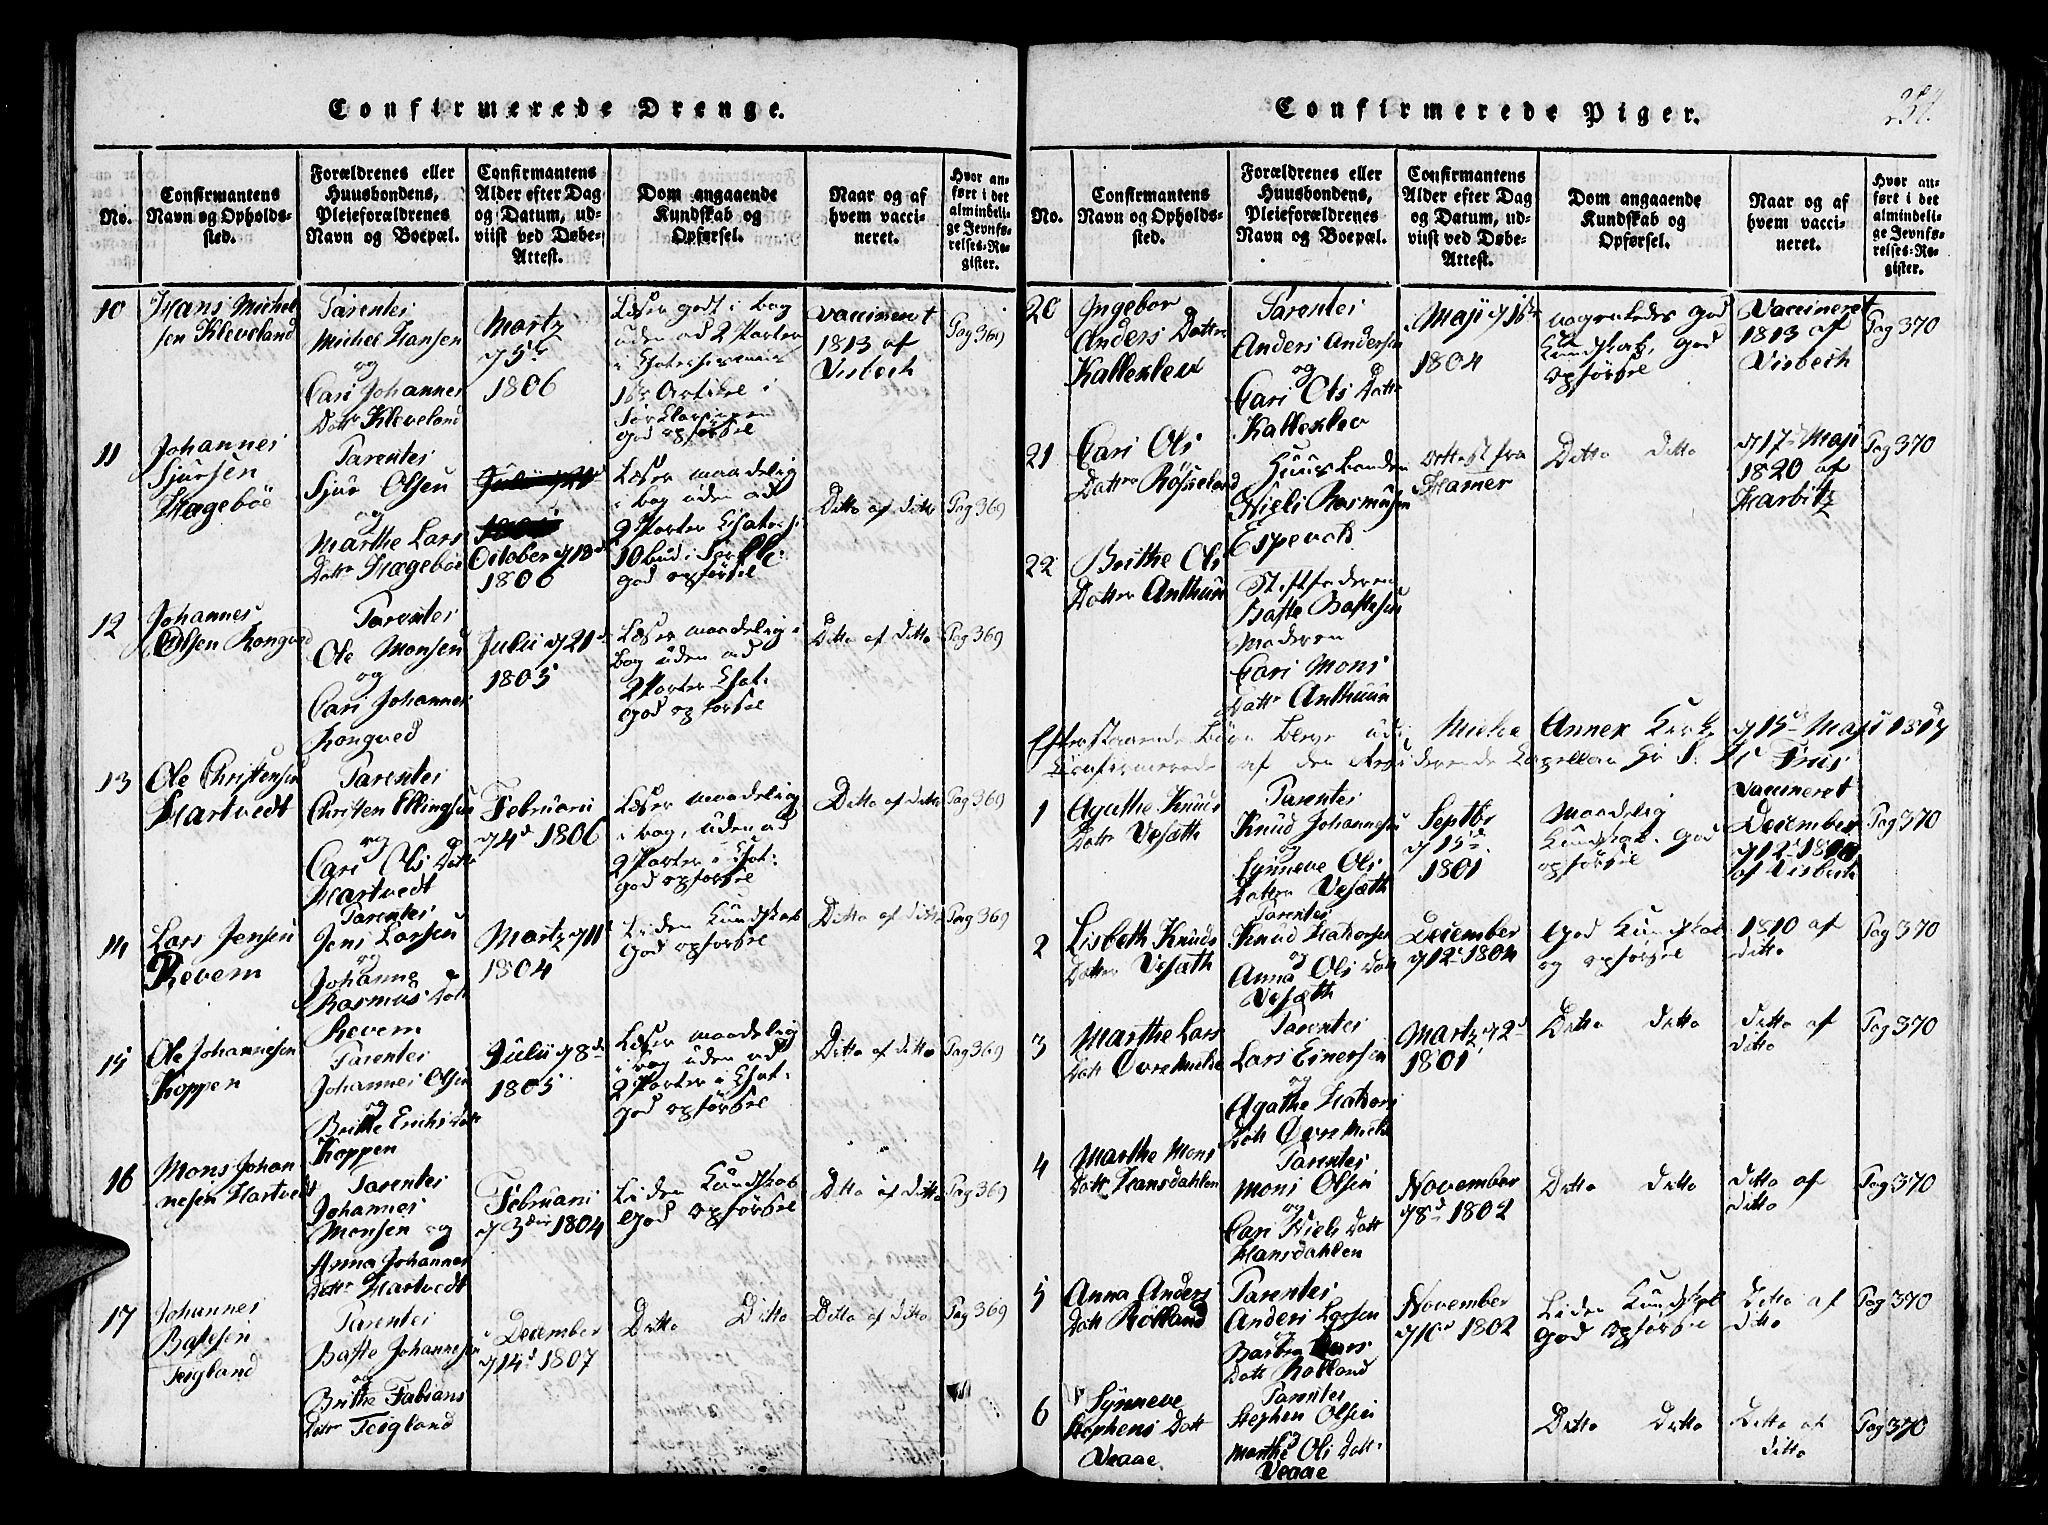 Confirmerede Drenge.
No.
Confirmantens
Navn og Opholds-
sted.
Forældrenes eller
Huusbondens,
Pleieforældrenes
Navn og Boepæl.
Confirmantens
Alder efter Dag
og Datum, ud-
viist ved Døbe-
Attest.
Dom angaaende
Kundskab og
Opførsel.
Naar og af
hvem vacci-
neret.
Hvor an-
ført i det
almindeli-
ge Jevnfø-
relses-Re-
gister.
10
Hans Michel
sen Kleveland
Parentes
Michel Hansen
og
Cari Johannes
Dattr Kleveland
Martz
d 5te
1806
Læser godt i bog
uden ad 2 Parter
i
1ste Artikel i
Forklaringen
god opførsel
vaccineret
1813 af
Visbech
Pag 369
11
Johannes
Sjursen
Hagebøe
Parentes
Sjur Olsen
og
Marthe Lars
Dattr Hagebøe
October d 18d
1806
Læser maadelig
i bog uden ad
2 Parter
10 bud i
god opførsel
Ditto af ditto
Pag 369
12
Johannes
Olsen Kongved
Parentes
Ole Monsen
og
Cari Johannes
Kongved
Julii d 21d
1805
Læser maadelig i
bog uden ad
2 Parter Chat.
god opførsel
Ditto af ditto
Pag 369
13
Ole Christensen
Hartvedt
Parentes
Christen Ellingsen
og
Cari Ols Dattr
Hartvedt
Februari
d 4d 1806
Læser maadelig
i bog, uden ad
2 Parter i Chat:
god opførsel
Ditto af ditto
Pag 369
14
Lars Jensen
Revem
Parentes
Jens Larsen
og
Johanne
Rasmus Datt
Revem
Martz d 11te
1804
Liden Kundskab
god opførsel
Ditto af ditto
Pag 369
15
Ole Johannesen
Koppen
Parentes
Johannes Olsen
og
Brithe Erichs Datt
Koppen
Julii d 8de
1805
Læser maadelig
i bog uden ad
2 Parter i Chat:
god opførsel
Ditto af ditto
Pag 369
16
Mons Johan
nesen Hartvedt
Parentes
Johannes
Monsen og
Anna Johannes
Dattr Hartvedt
Februari
d 3die 1804
Liden Kundskab
god opførsel
Ditto af ditto
Pag 369
17
Johannes
Batesen
Teigland
Parentes
Baste Johannesen
og
Brithe Fabians
Dattr Teigland
December
d 14d 1807
Ditto Ditto
Ditto af ditto
Pag 369
Confirmerede Piger.
No.
Confirmantens
Navn og Opholds-
sted.
Forældrenes eller
Huusbondens,
Pleieforældrenes
Navn og Boepæl.
Confirmantens
Alder efter Dag
og Datum, ud-
viist ved Døbe-
Attest.
Dom angaaende
Kundskab og
Opførsel.
Naar og af
hvem vacci-
neret.
Hvor an-
ført i det
almindeli-
ge Jevnfø-
relses-Re-
gister.
20
Ingebor
Anders Datter
Kalleklev
Parentes
Anders Andersen
og
Cari Ols Datt
Kalleklev
Maji d 16de
1804
god
Kundskab, god
opførsel
Vaccineret
1813 af
Visbech
Pag 370
21
Cari Ols
Datter Rösseland
Huusbonden
Niels Rasmusen
Espevak
Attest fra
Hamer
Ditto ditto
d 17d Maji
1820 af
Harbitz
Pag 370
22
Brithe Ols
Datter Anthuun
Stiffaderen
Baste Bastesen
Moderen
Cari Mons
Dattr Anthuun
Efterstaaende Børn bleve udi Mielse Annex Kirke d 15d Maji 1817
Confirmerede af den Residerende Capellan Hr
1
Agathe Knuds
Dattr Vesæth
Parentes
Knud Johannesen
og
Synneve Ols
Datter Vesæth
Septbr
d 15d
1801
Maadelig
Kundskab. god
opførsel
vaccineret
December
d 12d
af Visbech
Pag 370
2
Lisbeth Knuds
Datter Vesæth
Parentes
Knud Hakorsen
og
Anna Ols Datt
Vesæth
December
d 12d 1804
God Kundskab
og opførsel
1810 af
ditto
Pag 370
3
Marthe Lars
Datt Øvre Mielse
Parentes
Lars Einersen
og
Agathe Hakors
Datt Øvre Mielse
Martz d 2d
1801
Ditto ditto
ditto af
ditto
Pag 370
4
Marthe Mons
Datt Hansdahlen
Parentes
Mons Olsen
og
Cari Niels Datt
Hansdahlen
November
d 8d 1802
Ditto ditto
ditto af
ditto
Pag 370
5
Anna Anders
Datt Rolland
Parentes
Anders Larsen
og
Barbra Lars
Datt Rolland
November
d 10d 1802
Liden Kundskab
god opførsel
Ditto af
ditto
Pag 370
6
Synneve
Stephens Datt
Veaae
Parentes
Stephen Olsen
og
Marthe Ols Datt.
Veaae
Ditto ditto
Ditto af
ditto
Pag 370